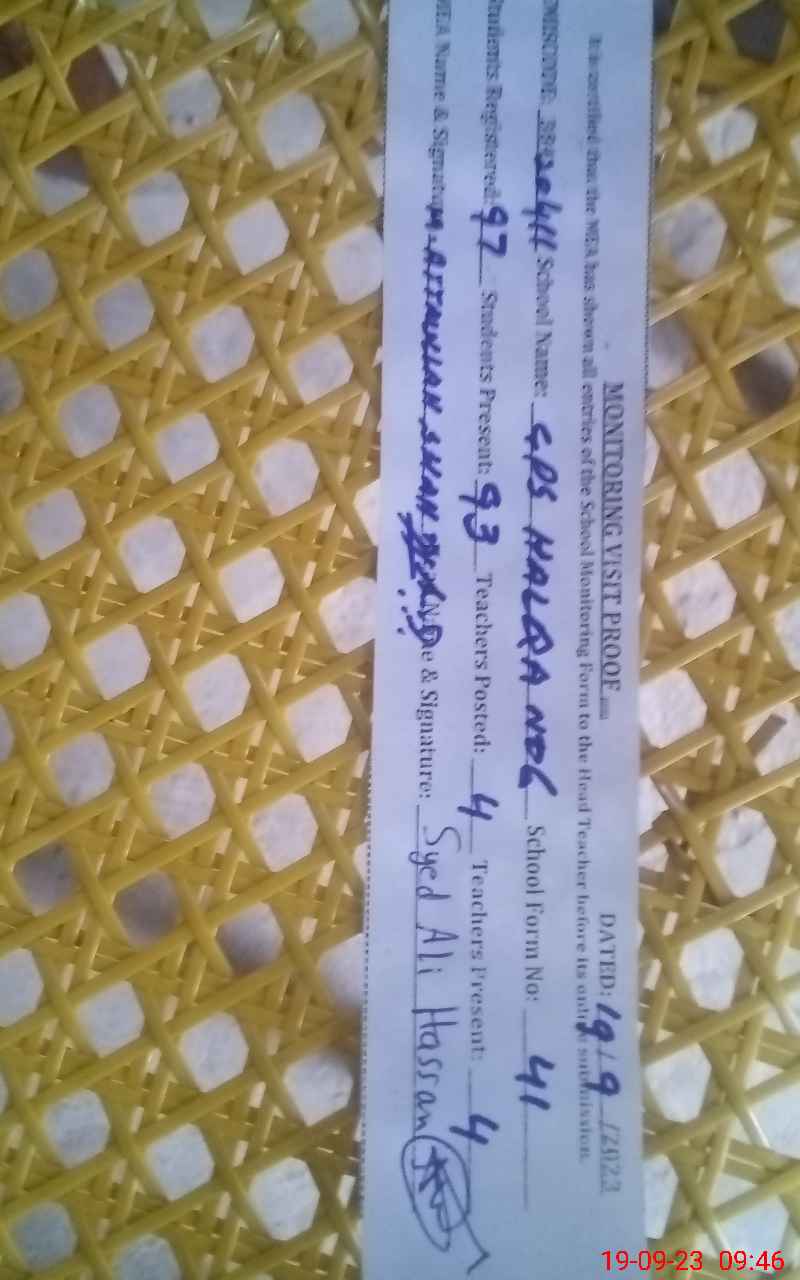 MONITORING VISIT PROOF DATED: 19/9/2023
It is certified that the MEA has shown all entries of the School Monitoring Form to the Head Teacher before its online submission.
School Name: GPS HALQA NO6 School Form No: 41
Students Registered: 97 Students Present: 93 Teachers Posted: 4 Teachers Present: 4
MEA Name & Signature SHAH Name & Signature: Syed Ali Hassan
19-09-23 09:46